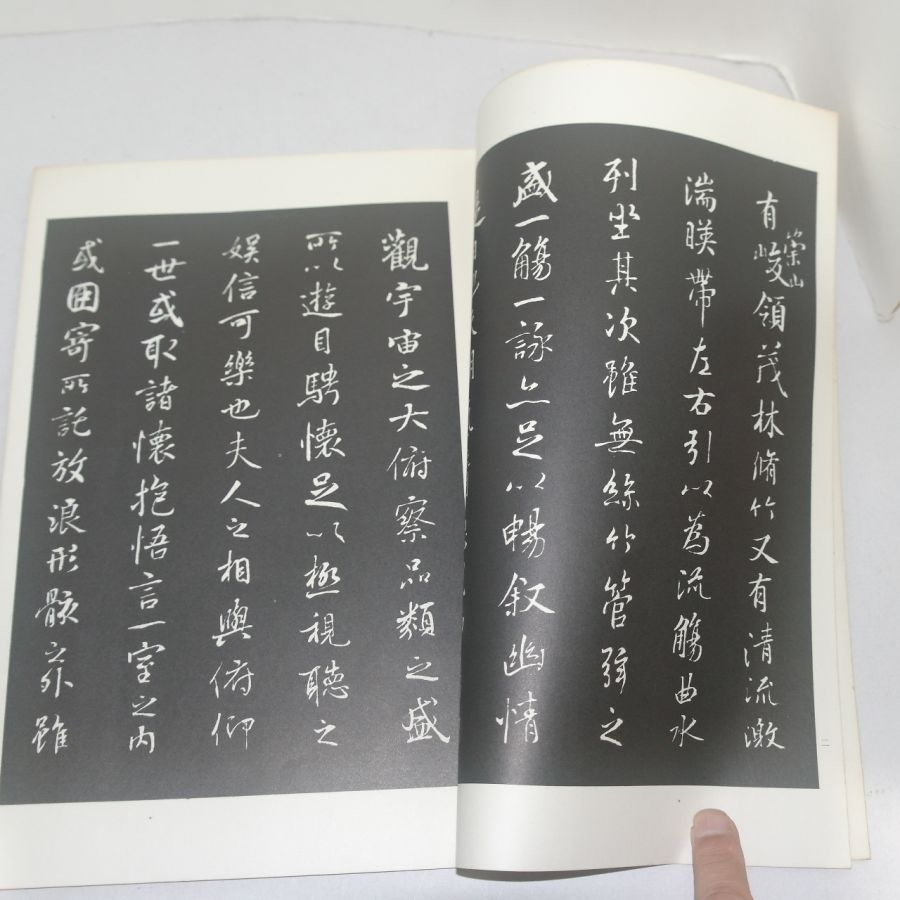 有崇山峻領茂林脩竹又有清流激
湍暎帶左右引以為流觴曲水
列坐其次雖無絲竹管弦之
盛一觴一詠亦足以暢叙幽情
觀宇宙之大俯察品類之盛
所以遊目騁懷足以極視聽之
娛信可樂也夫人之相與俯仰
一世或取諸懷抱悟言一室之內
或因寄所託放浪形骸之外雖
二